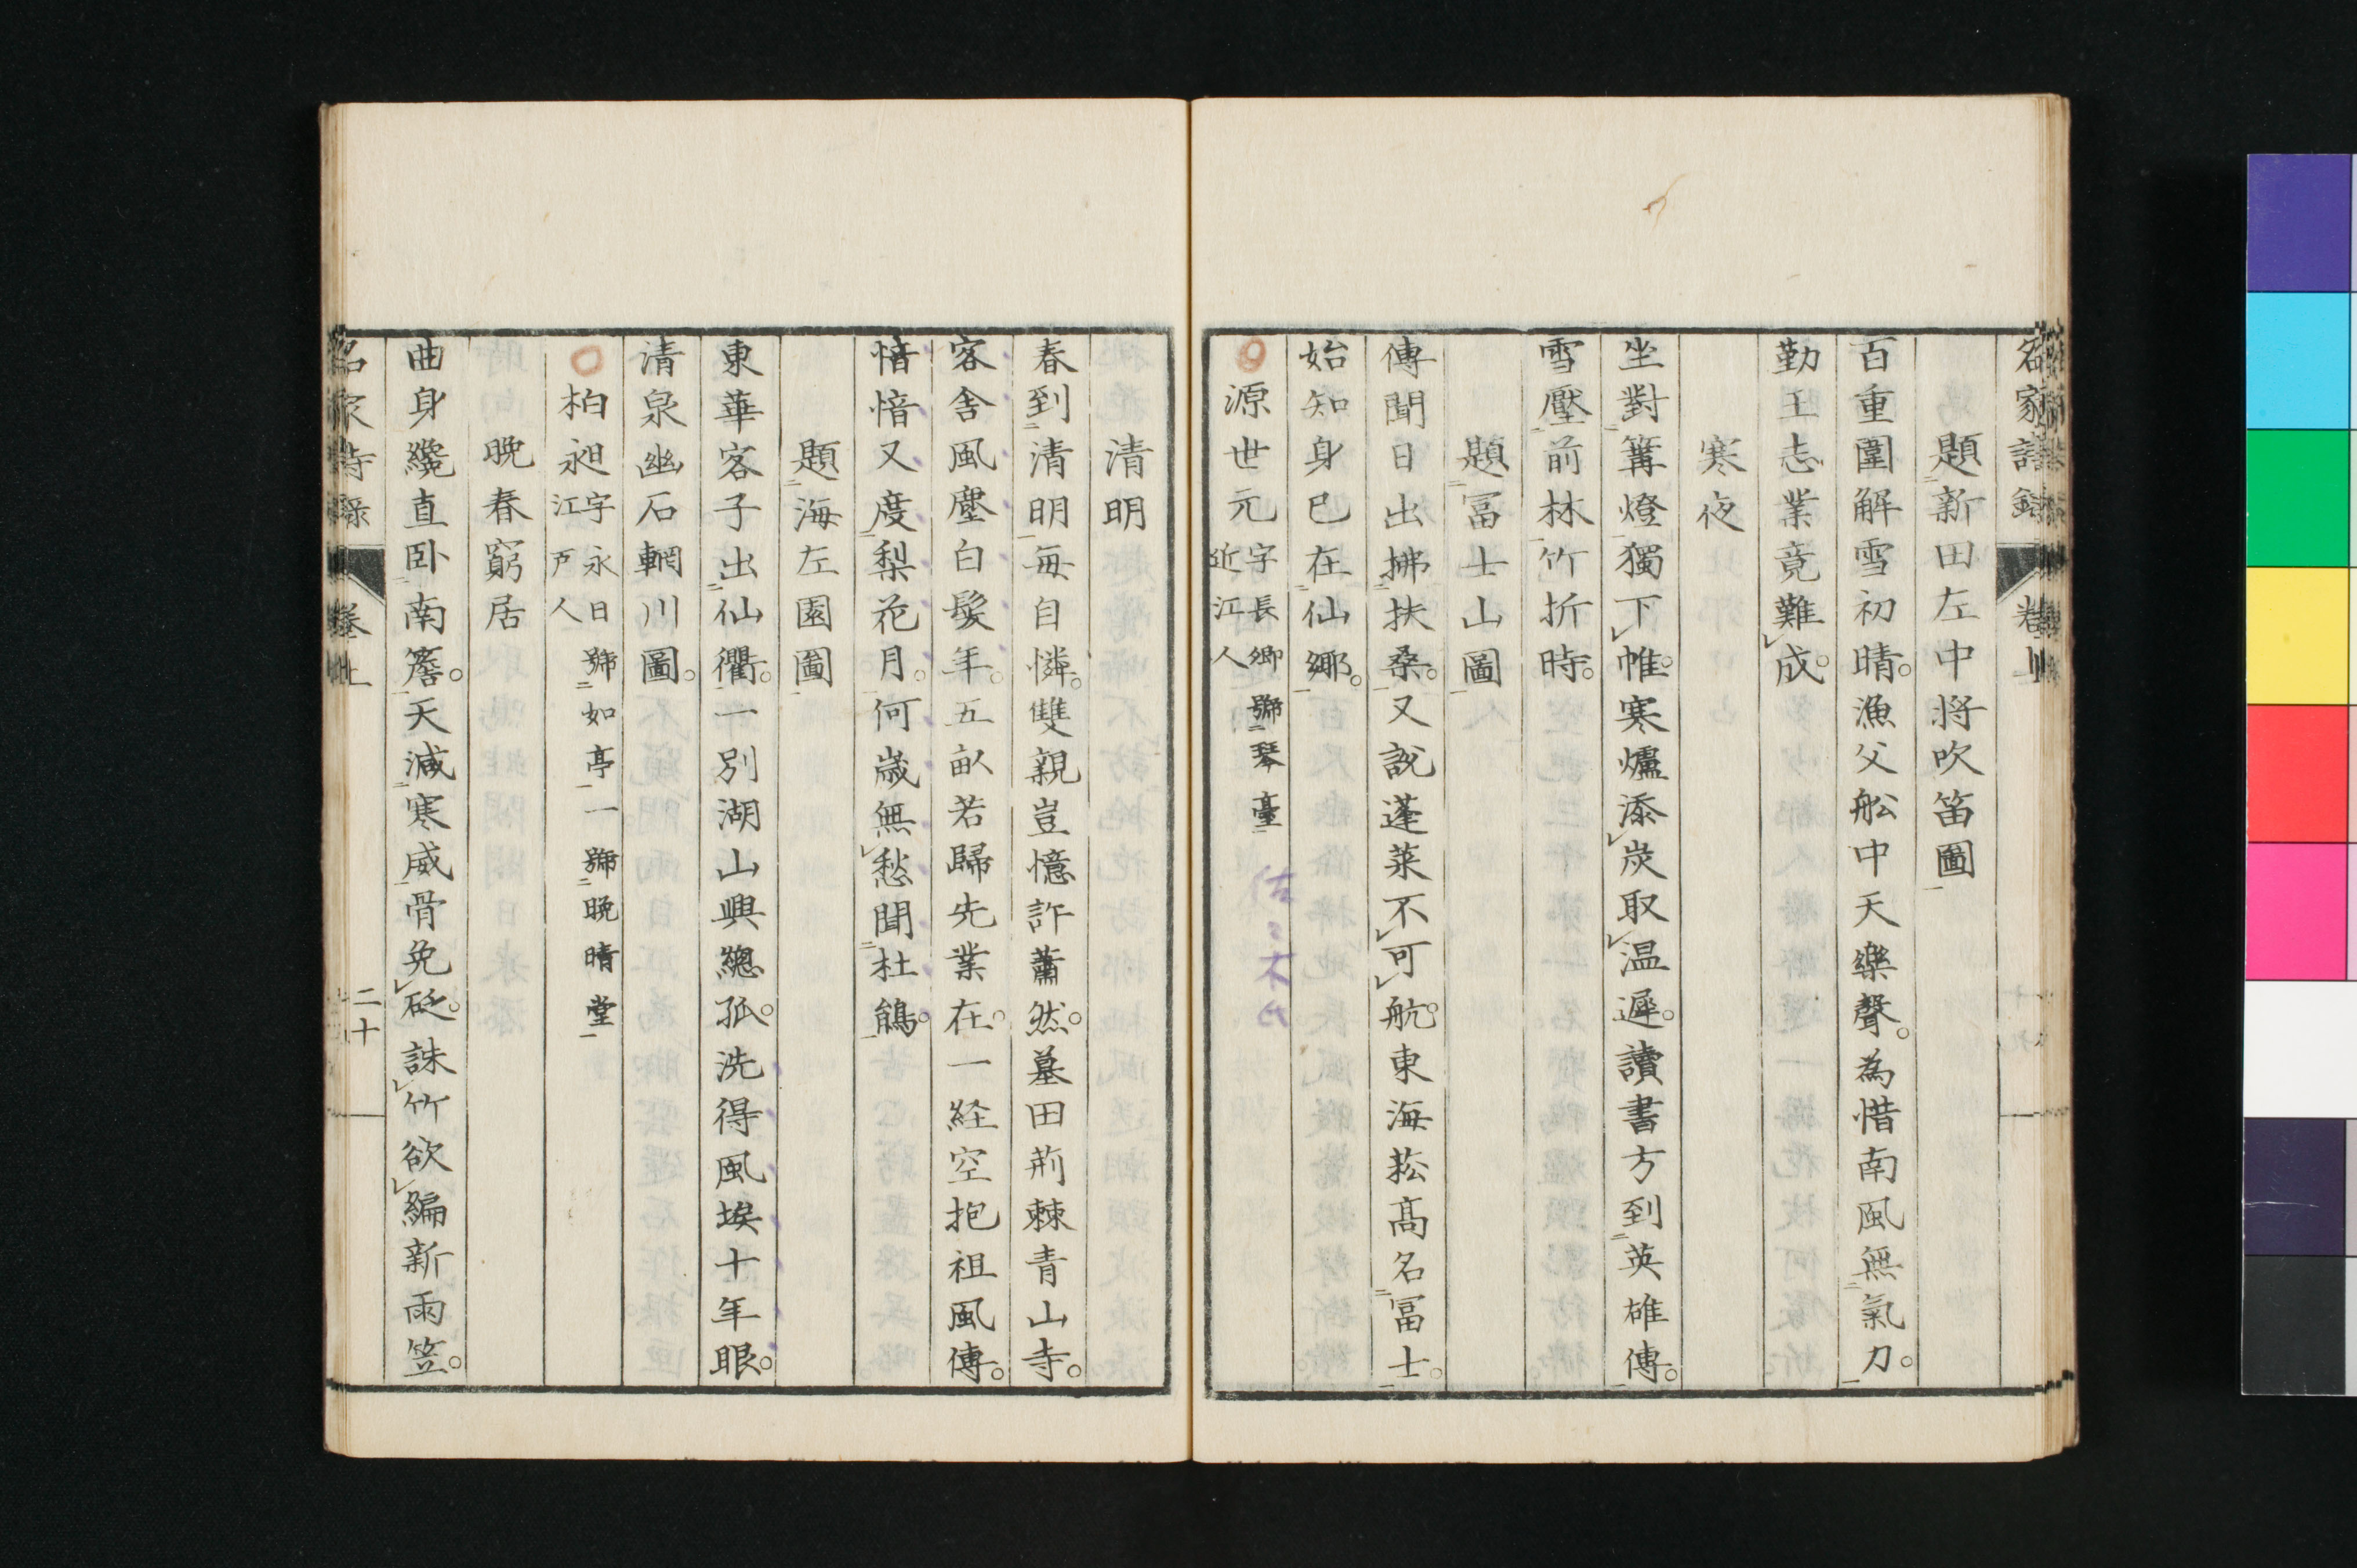 題新田左中将吹笛圖
百重圍解雪初晴。漁父舩中天樂聲。為惜南風無氣力。
勤王志業竟難成。
寒夜
坐對篝燈獨下帷。寒爐添炭取温遲。讀書方到英雄傳。
雪壓前林竹折時。
題冨士山圖
傳聞日出拂扶桑。又說蓬萊不可航。東海菘高名冨士。
始知身已在仙鄉。
源世元 字長卿 近江人 號琴臺
佐々木氏
清明
春到清明每自憐。雙親豈憶許蕭然。墓田荊棘青山寺。
客舍風塵白髮年。五畝若歸先業在。一経空抱祖風傳。
愔愔又度梨花月。何歲無愁聞杜鵑。
題海左園圖
東華客子出仙衢。一別湖山興總孤。洗得風埃十年眼。
清泉幽石輞川圖。
柏昶 字永日 江戸人 號如亭一號晚晴堂
晚春窮居
曲身纔直卧南簷。天減寒威骨免砭。誅竹欲編新雨笠。
名家詩録 卷上 二十